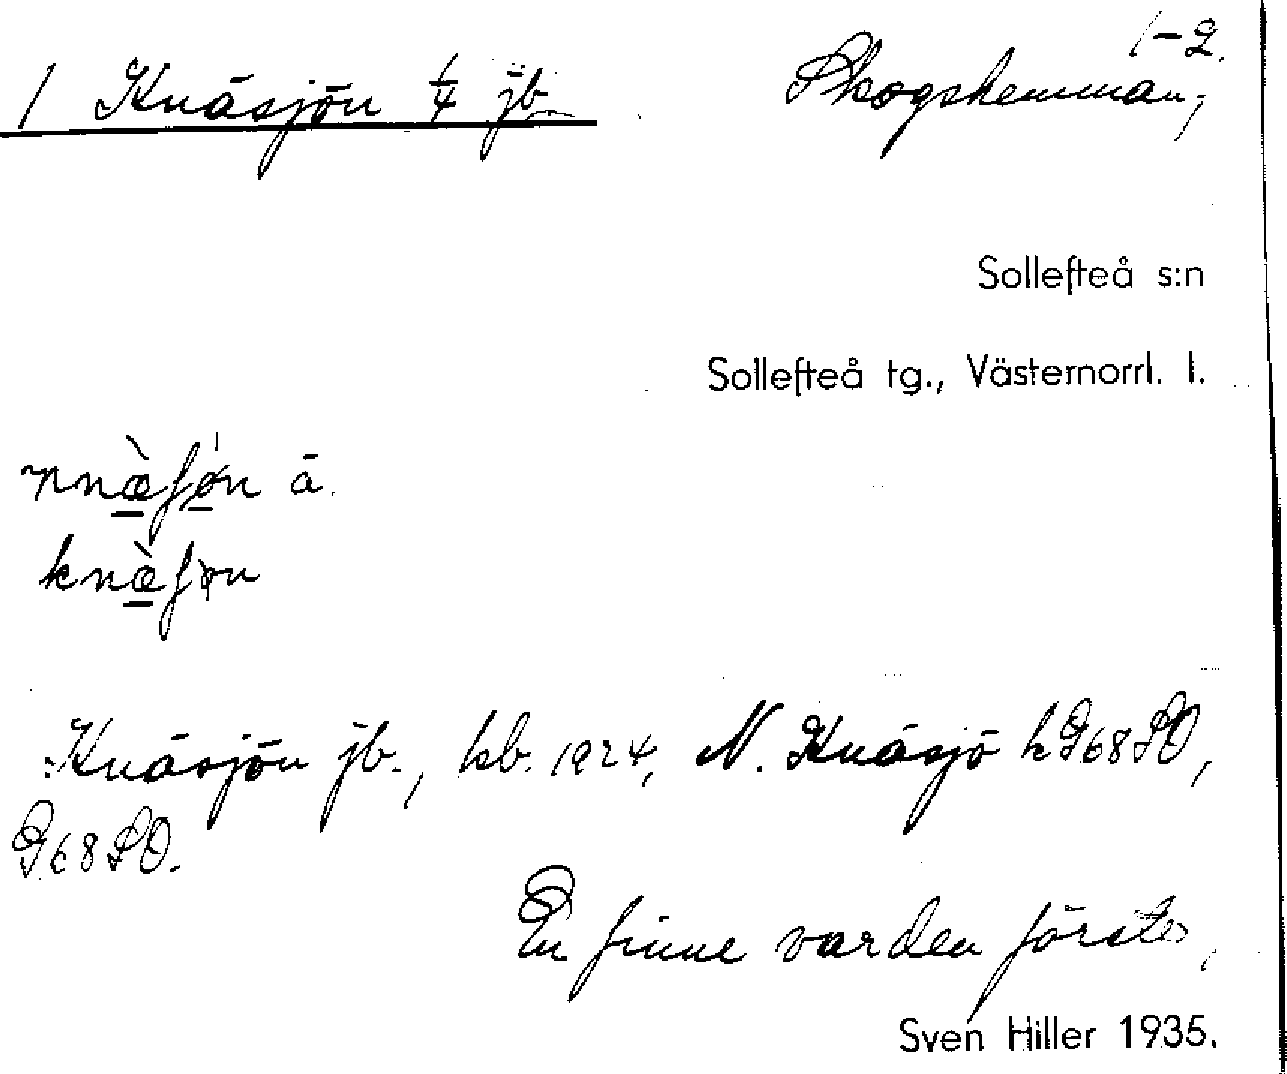 1-2.
1 Knäsjön 1/4 jb. Skogshemman,
Sollefteå s:n
Sollefteå tg., Västernorrl. l.
ä.
Knäsjön jb., kb. 1924, N. Knäsjö k G68SO,
G68SO.
En finne var den förste,
Sven Hiller 1935.